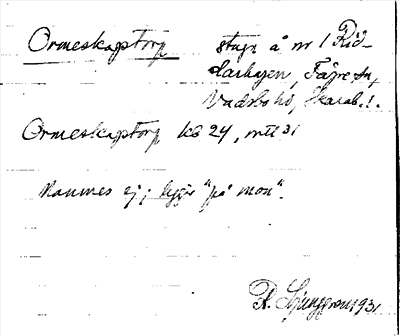 Ormeskagstorp stuga å nr 1 Rid-
darhagen, Fägre sn,
Vadsbo hd, Skarab. l.
Ormeskagstorp kb 24, mtl 31
Namnes ej; ligger "på mon".
R. Ljunggren 1931